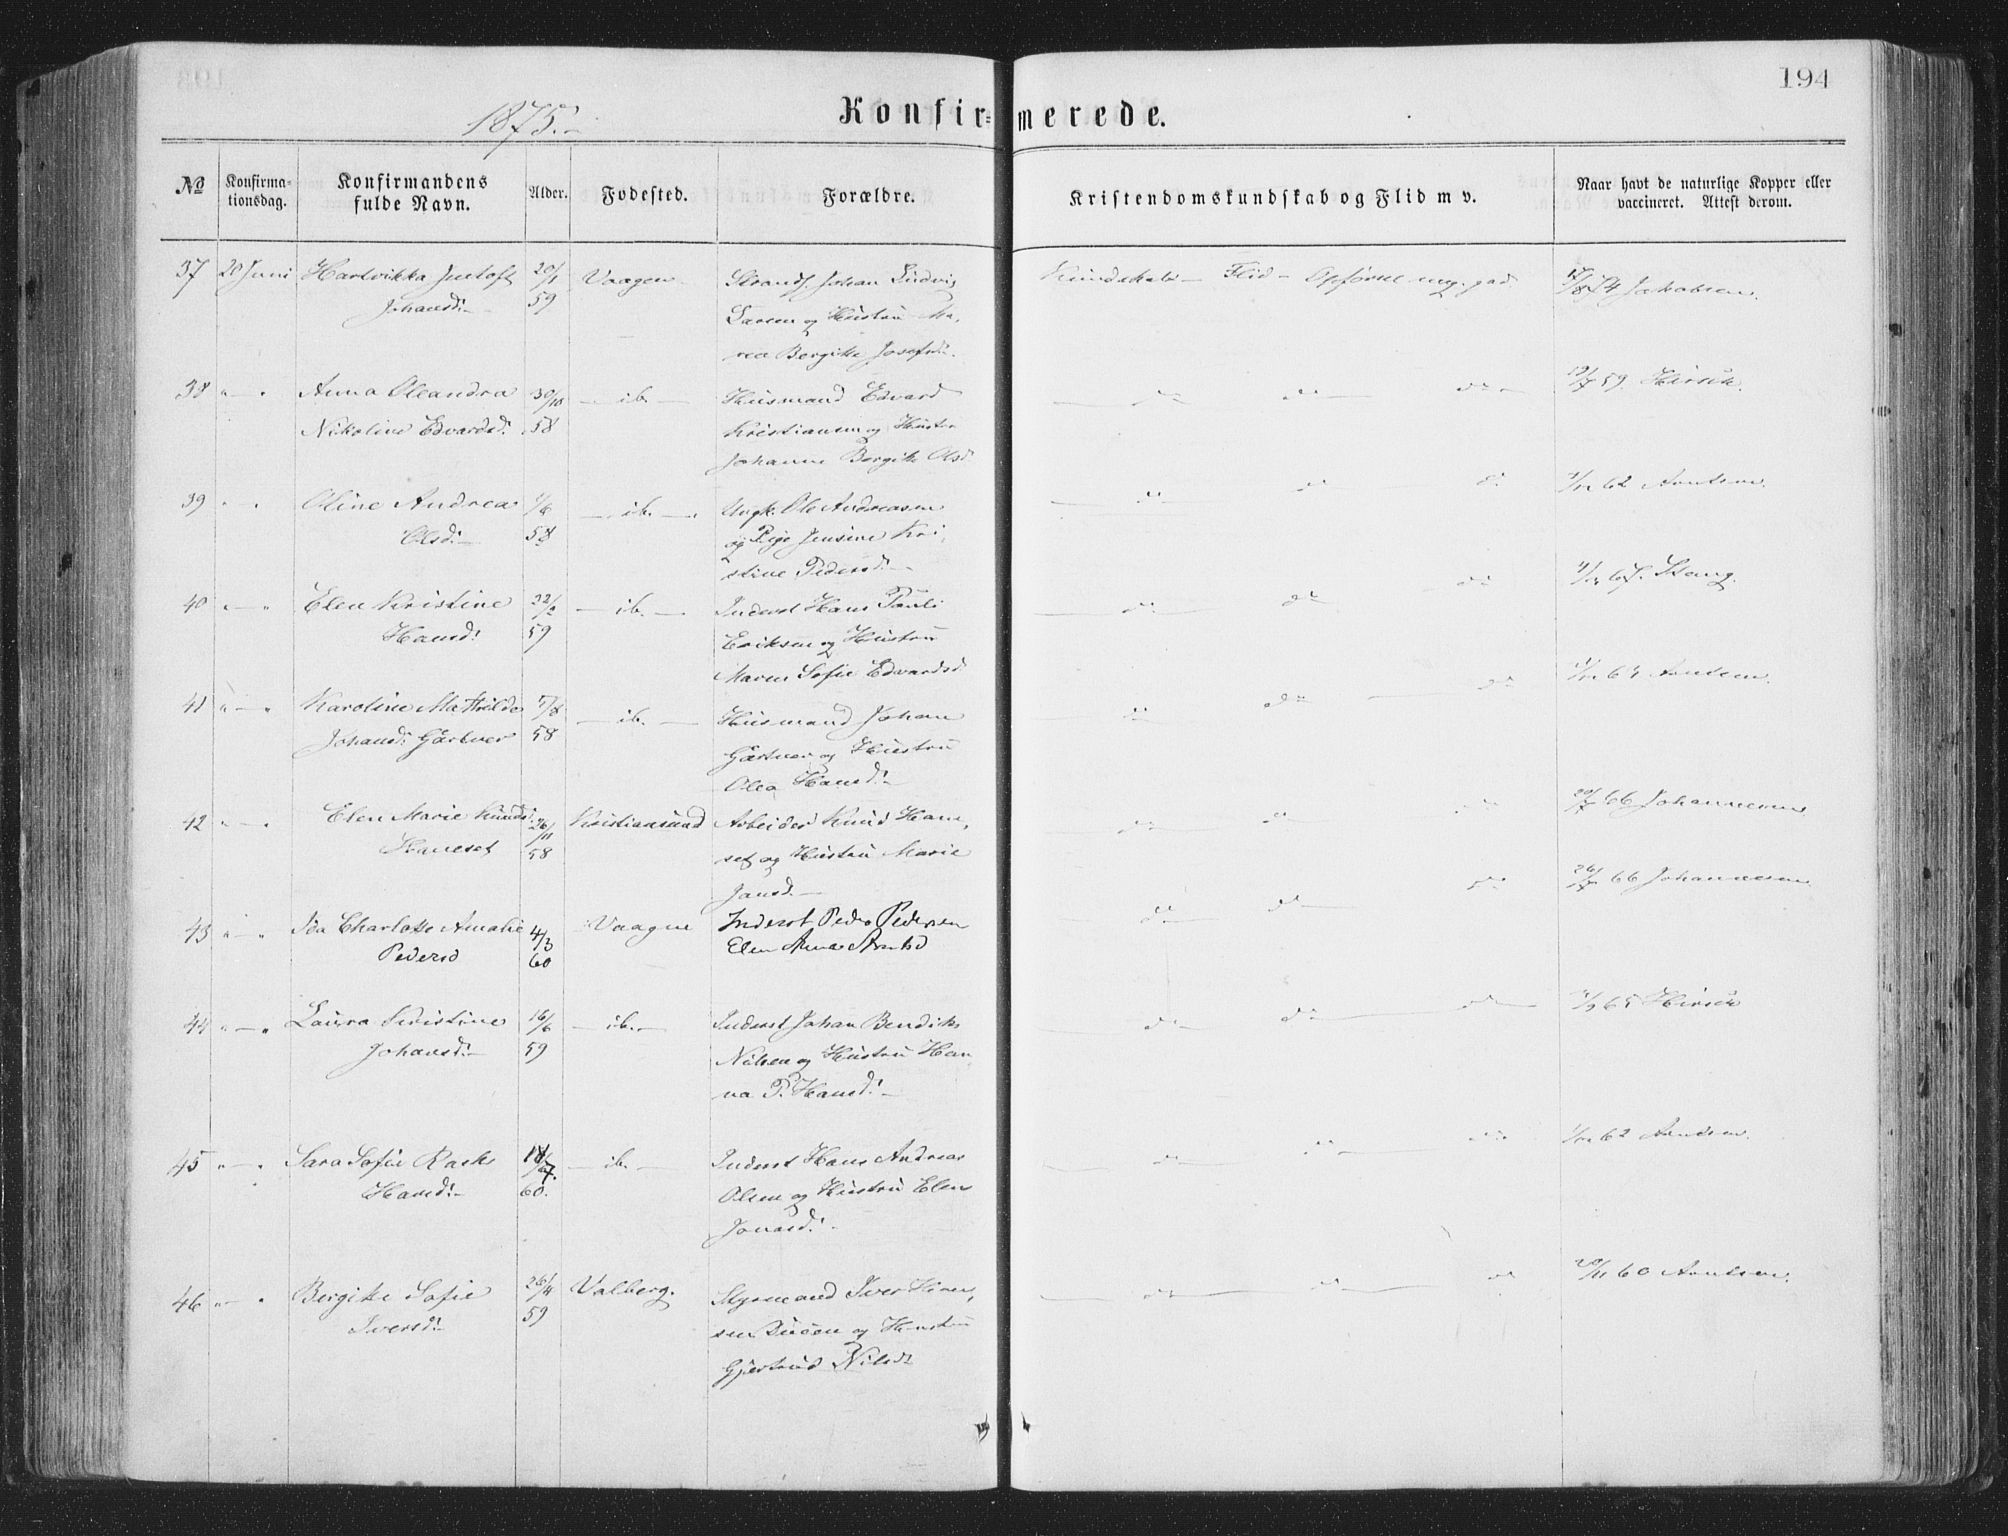 194
1875.
Konfirmerede.
No
Konfirmationsdag.
Konfirmandens fulde Navn.
Alder.
Fødested.
Forældre.
Kristendomskundskab og Flid m v.
Naar havt de naturlige Kopper eller vaccineret. Attest derom.
37 20 Juni Hartvikka Justoft 20/1 Vaagen Strands. Johan Ludvig Kundskab – Flid – Opførsel meg. god 74 Jakobsen.
Johansd: 59 Larsen og Hustru Ma-
rea Bergitte Josefsd:
38 " — " Anna Oleandra 30/10 — ib. — Husmand Edvard do do do 59. Hirsch.
Nikoline Edvardsd: 58 Kristiansen og Hustru
Johanne Bergitte Olsd.
39 " — " Oline Andrea 1/6 — ib. — Ungk. Ole Andreasen do do do 62 Arntsen
Olsd: 58 og Pige Jensine Kri-
stine Pedersd:
40 " — " Elen Kristine 22/2 — ib. — Inderst Hans Pauli do do do Stang.
Hansd: 59 Eriksen og Hustru
Maren Sofie Edvardsd
41 " — " Karoline Mathilde 7/8 — ib. — Husmand Johan do do do Arntsen.
Johansd: Gärtner 58 Gärtner og Hustru
Olea Hansd:
42 " — " Elen Marie Knudsd: 26/11 Kristiansund Arbeider Knud Han- do do do 66 Johannesen
Hanset 58 set og Hustru Marie
Jansd.
43 " — " Ida Charlotte Amalie 4/3 Vaagen Inderst Peder Pedersen do do do 66 Johannesen
Pedersd 60 Elen Anna Arntsd
44 " — " Laura Kristine 16/6 — ib. — Inderst Johan Bendiks do do do 65 Hirsch
Johansd: 59 Nilsen og Hustru Han-
na P. Hansd:
45 " — " Sara Sofie Rask 18/7. — ib. — Inderst Hans Andreas do do do 62 Arntsen.
Hansd: 60. Olsen og Hustru Elen
Jonasd:
46 " — " Bergitte Sofie 26/4 Valberg. Styrmand Iver do do do 20/11 60 Arntsen.
Iversd: 59 og Hustru
Gjertrud Nilsd: